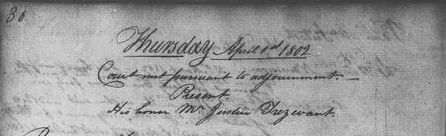 36
Thursday April 1st 1802
Court met pursuant to adjournment.—
Present.
His honor Mr Justice Trezevant.